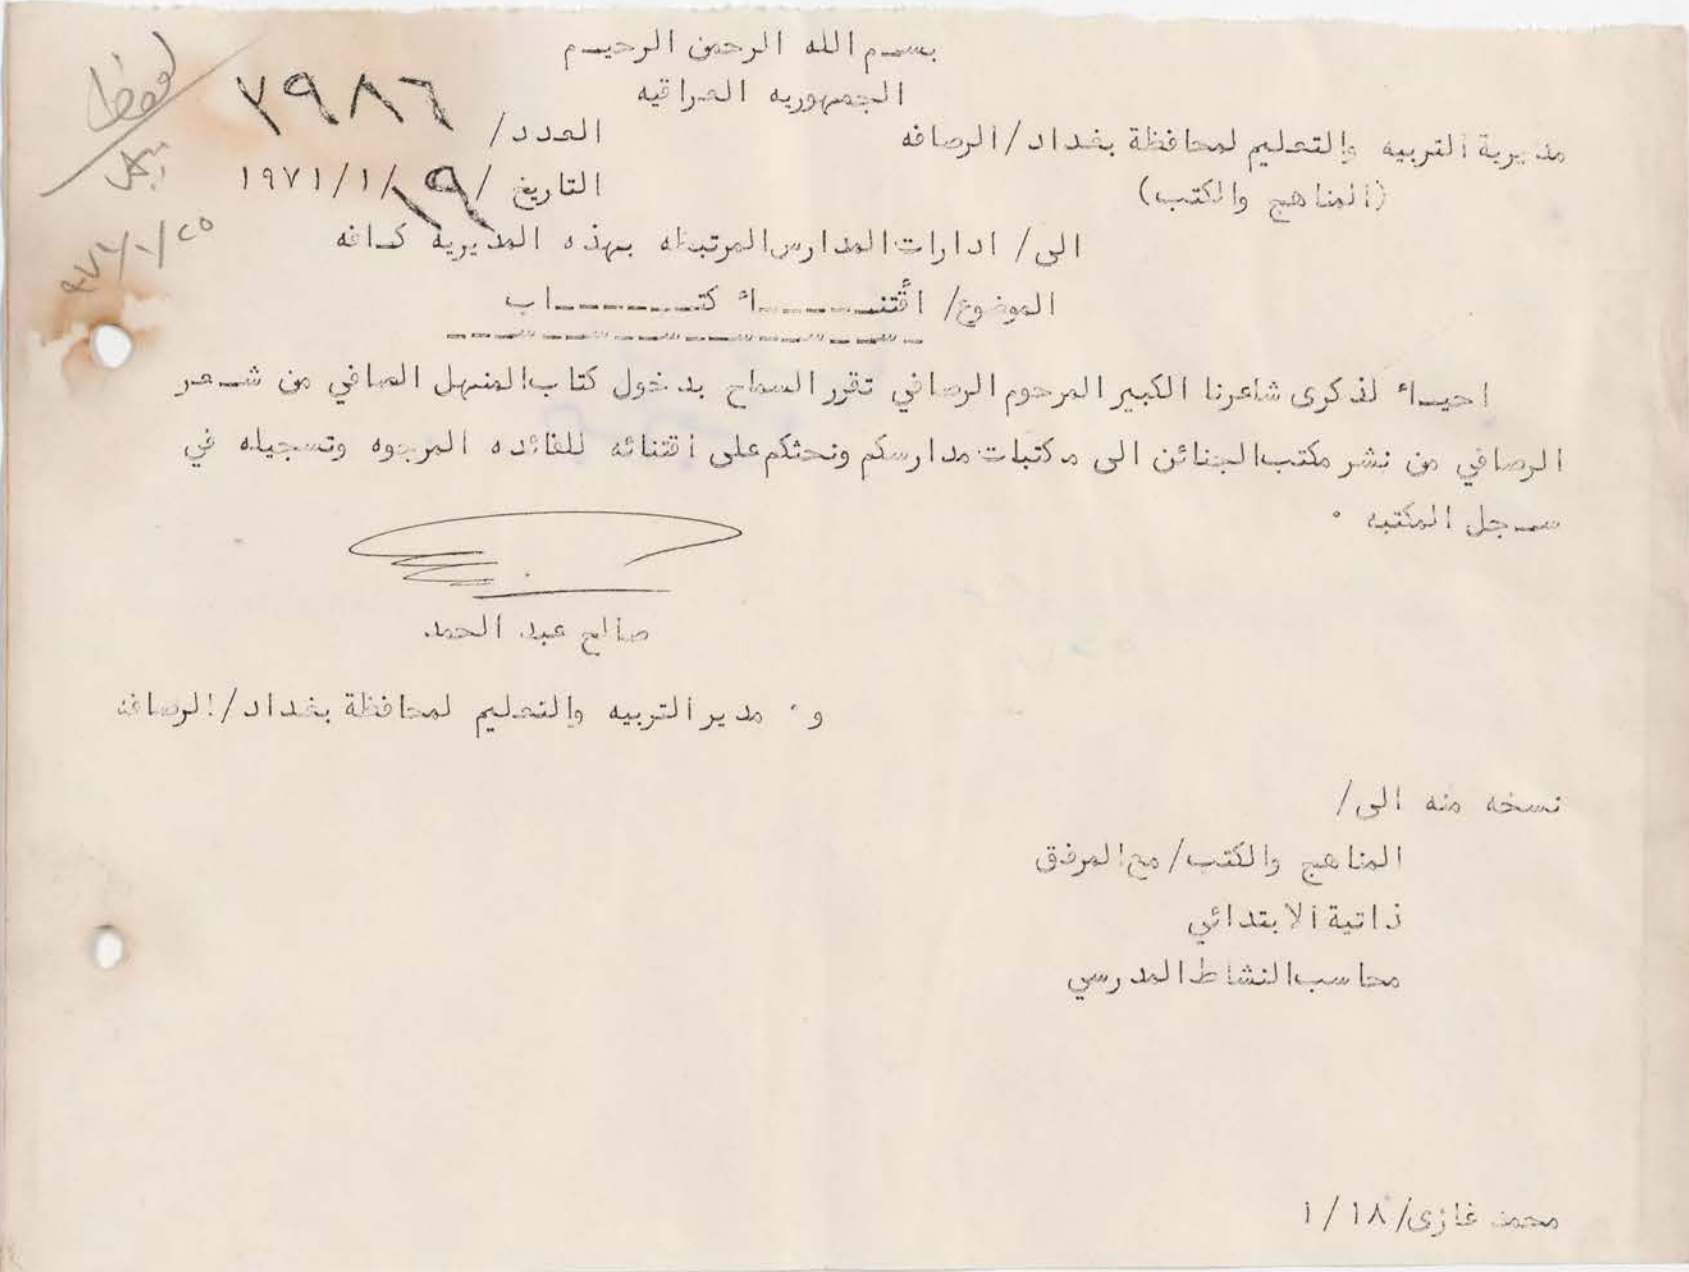 بسم الله الرحمن الرحيم
الجمهوريه العراقيه
مديرية التربيه والتعليم لمحافظة بغداد/الرصافه
العدد/ ٢٩٨٦
(المناهج والكتب)
التاريخ /١٩/١/١٩٧١
الى/ ادارات المدارس المرتبطه بهذه المديريه كافه
الموضوع/ اقتناء كتاب
احياء لذكرى شاعرنا الكبير المرحوم الرصافي تقرر السماح بدخول كتاب المنهل الصافي من شعر
الرصافي من نشر مكتب الجنائن الى مكتبات مدارسكم ونحثكم على اقتنائه للفائده المرجوه وتسجيله في
سجل المكتبه .
صالح عبد الحمد
و. مدير التربيه والتعليم لمحافظة بغداد/الرصافه
نسخه منه الى/
المناهج والكتب/مع المرفق
ذاتية الابتدائي
محاسب النشاط المدرسي
محمد غازى/١٨/١
٢٥/١/٩٧١